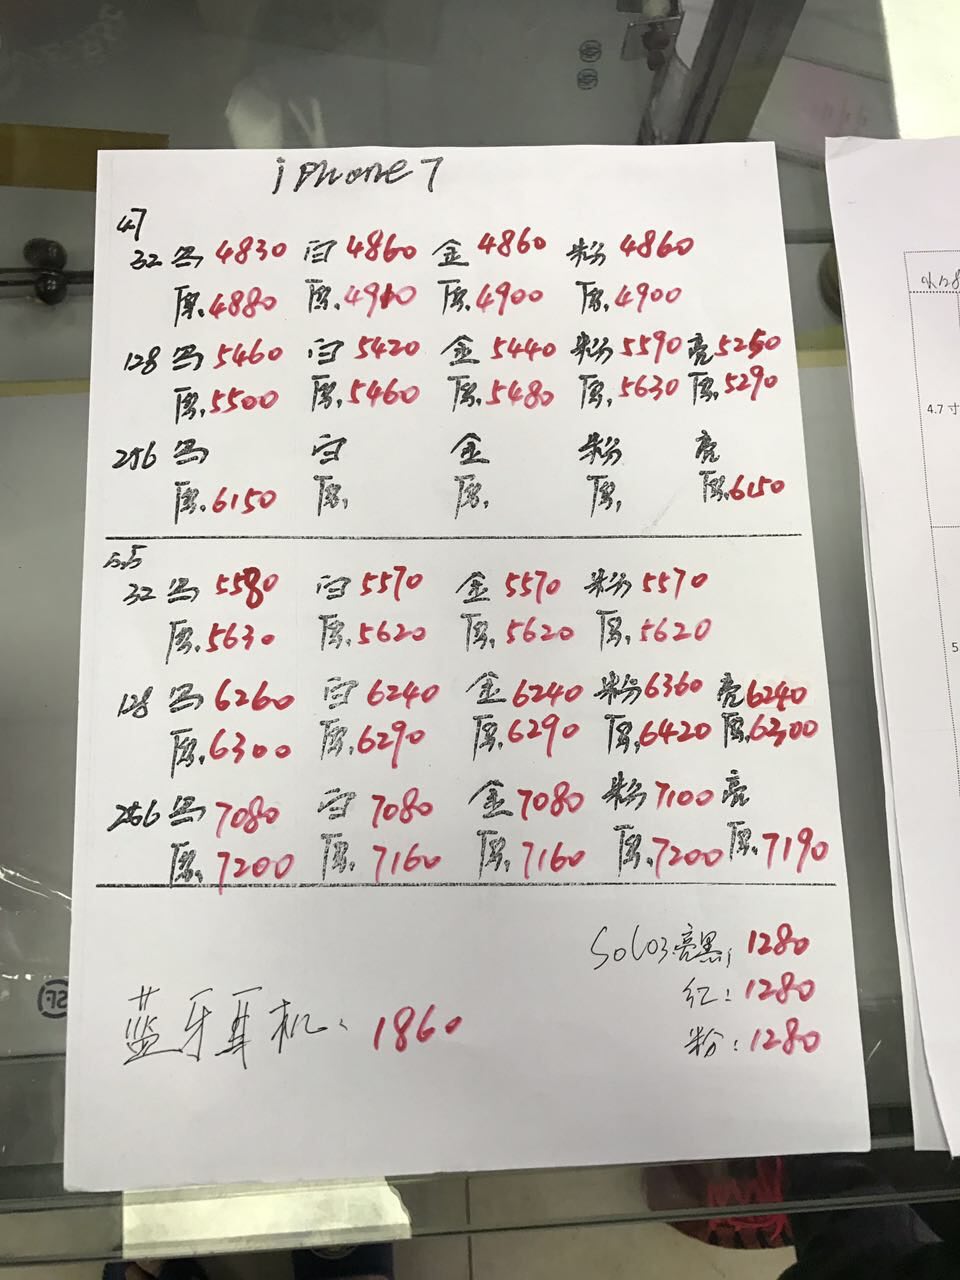 iPhone7
4.7
32 黑 4830 白 4860 金 4860 粉 4860
原.4880 原.4910 原.4900 原.4900
128 黑 5460 白 5420 金 5440 粉 5590 亮 5250
原.5500 原.5460 原.5480 原.5630 原.5290
256 黑 白 金 粉 亮
原.6150 原. 原. 原. 原.6150
5.5
32 黑 5580 白 5570 金 5570 粉 5570
原.5630 原.5620 原.5620 原.5620
128 黑 6260 白 6240 金 6240 粉 6360 亮 6240
原.6300 原.6290 原.6290 原.6420 原.6300
256 黑 7080 白 7080 金 7080 粉 7100 亮
原.7200 原.7160 原.7160 原.7200 原.7190
Solo3亮黑: 1280
红: 1280
粉: 1280
蓝牙耳机: 1860
4.7寸